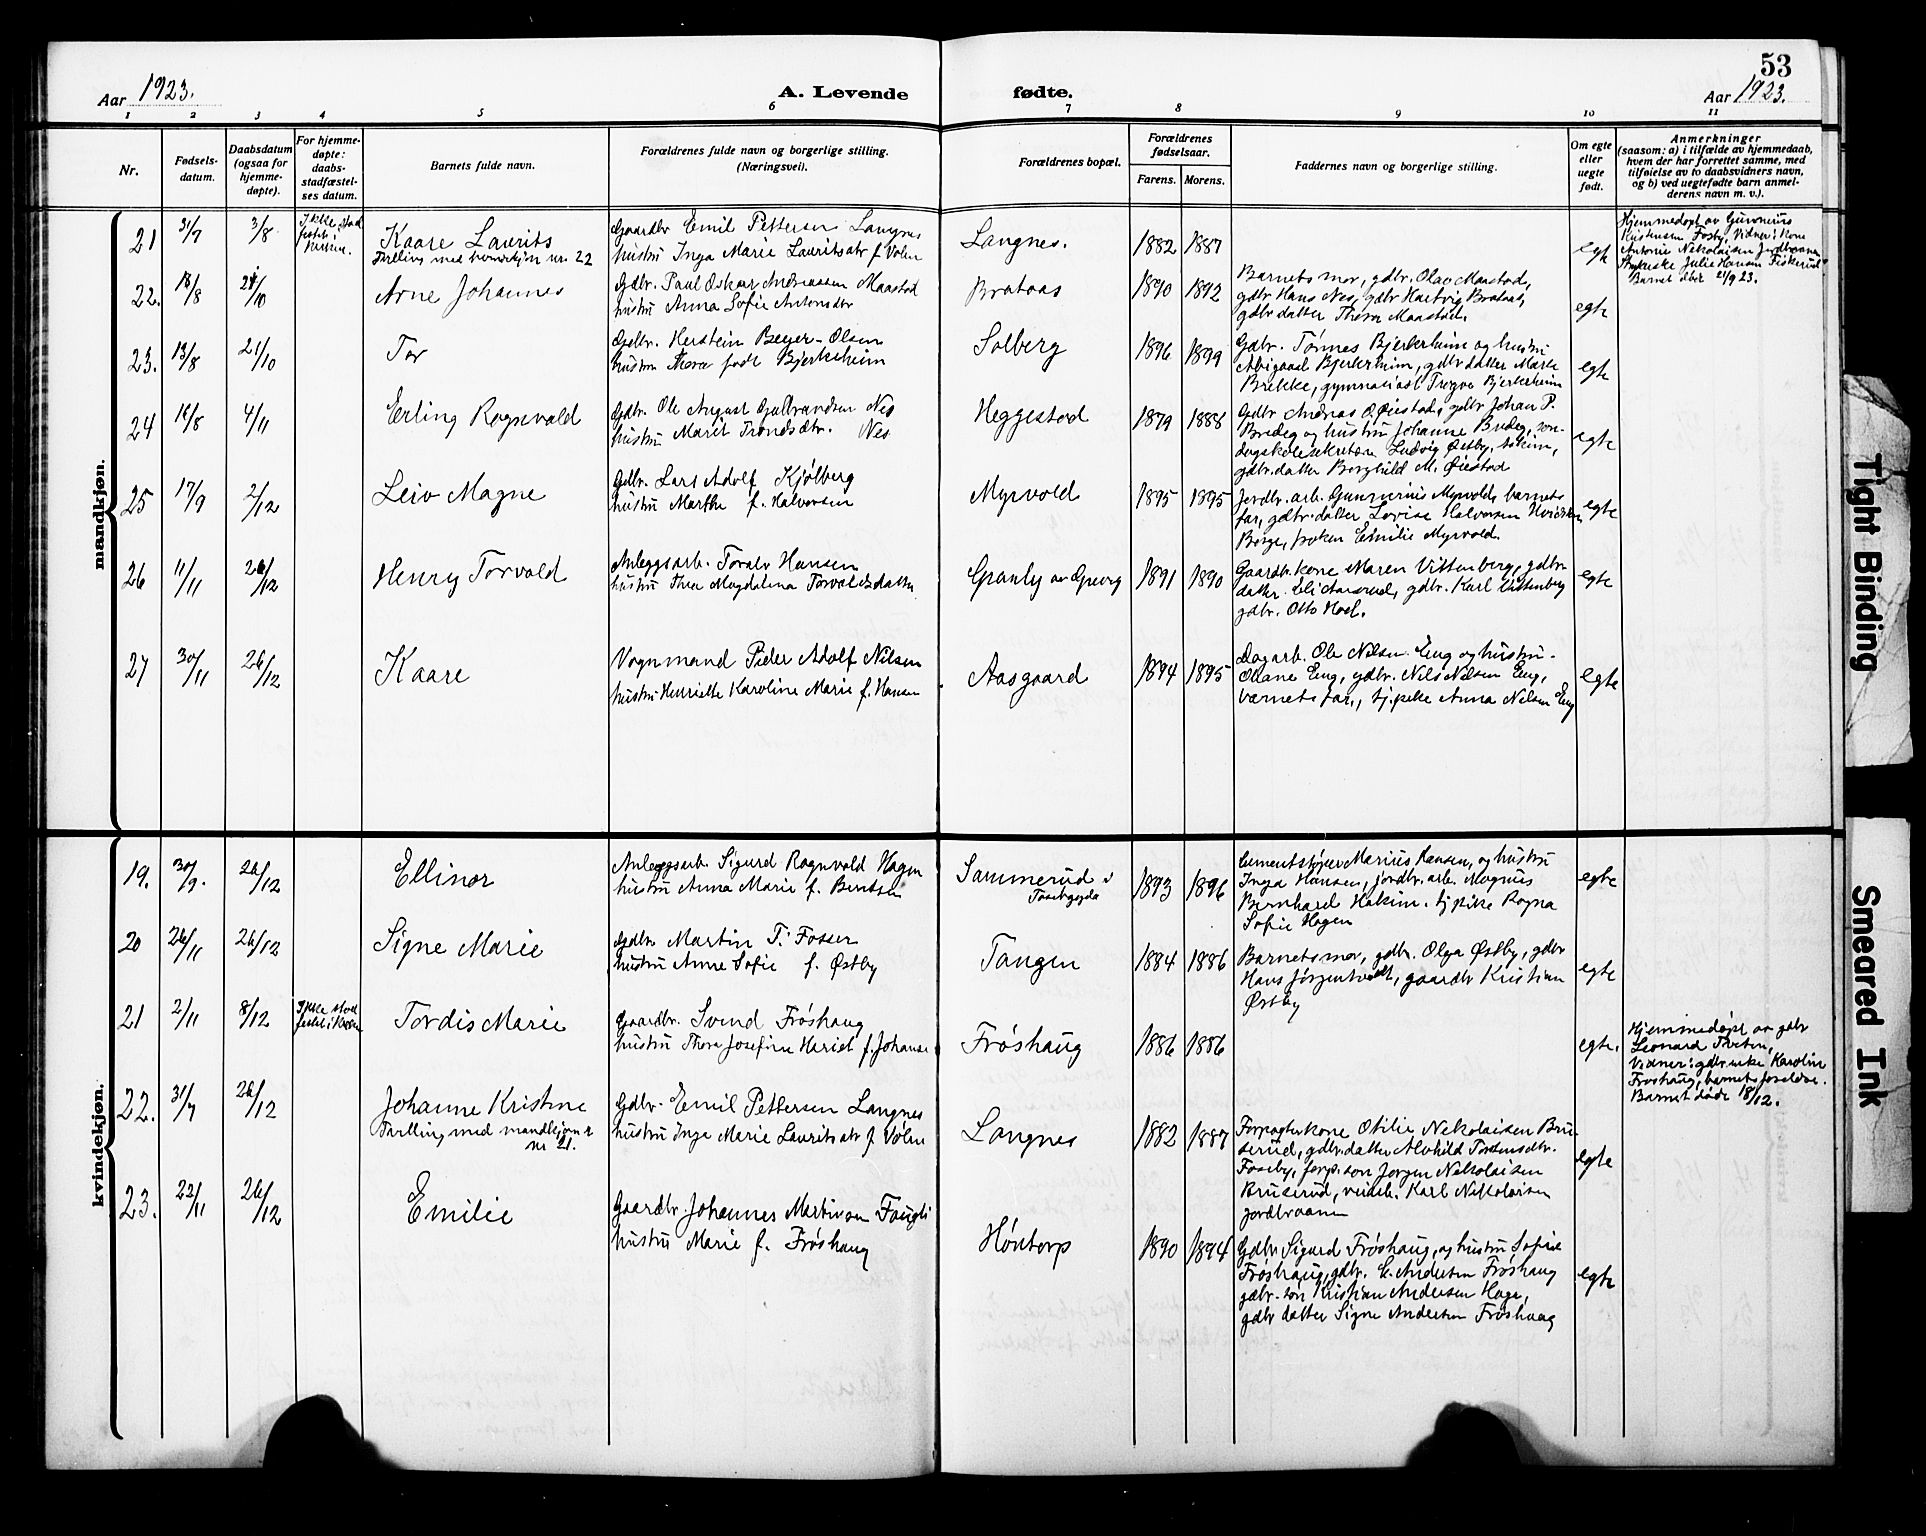 53
Aar 1923.
A. Levende
fødte.
Aar 1923.
1 2 3 4 5 6 7 8 9 10 11
Nr.
Fødsels-
datum.
Daabsdatum
(ogsaa for
hjemme-
døpte).
For hjemme-
døpte:
daabs-
stadfæstel-
ses datum.
Barnets fulde navn.
Forældrenes fulde navn og borgerlige stilling.
(Næringsvei).
Forældrenes bopæl.
Forældrenes
fødselsaar.
Farens. Morens.
Faddernes navn og borgerlige stilling.
Om egte
eller
uegte
født.
Anmerkninger
(saasom: a) i tilfælde av hjemmedaab,
hvem der har forrettet samme, med
tilføielse av to daabsvidners navn,
og b) ved uegtefødte barn anmel-
derens navn m. v.).
mandkjøn.
21 31/7 3/8
Ikke stad
festet i
kirken.
Kaare Laurits
Tvilling med kvindekjøn nr. 22
Gaardbr Emil Pettersen Langnes
hustru Inga Marie Lauritsdtr f. Volen
Langnes.
1882 1887
egte
Hjemmedøpt av Gunnerius
Kristensen Fosby, Vidner: Kone
Antonie Nikolaisen Jordbraanen
Julie Hansen Fiskerud
Barnet døde 21/9 23.
22. 18/8 21/10
Arne Johannes
Gdbr. Paul Oskar Andreassen Maastad
hustru Anna Sofie Antonsdtr
Brataas
1890 1892
Barnets mor, gdbr. Olav Maastad,
gdbr Hans Nes, gdbr Hartvig Brataas,
gdbr datter Thora Maastad.
egte
23. 13/8 21/10
Tor
Gdbr. Kerstein Beyer-Olsen
hustru Thora født Bjerkeheim
Solberg
1896 1899
Gdbr. Tønnes Bjerkerheim og hustru
Abigael Bjerkerheim, gdbr datter Marte
Brekke, gymnasiast Trygve Bjerkerheim
egte
24 16/8 4/11
Erling Rognvald
Gdbr. Ole August Gulbrandsen Nes
hustru Marit Trondsdtr. Nes
Heggestad
1879 1888
Gdbr Andreas O. Øiestad, gdbr Johan P.
Bredeg og hustru Johanne Bredeg, søn-
dagskolesekretær Ludvig Østby, Askim,
gdbr. datter Borghild M. Øiestad
egte
25 17/9 2/12
Leiv Magne
Gdbr. Lars Adolf Kjølberg
hustru Marthe f. Halvorsen
Myrvold
1895 1895
Jordbr. arb. Gunnerius Myrvold, barnets
far, gdbr. datter Lovise Halvorsen
Borge, frøken Emilie Myrvold.
egte
26 11/11 26/12
Henry Torvald
Anleggsarb. Toralv Hansen
hustru Thea Magdalena Torvaldsdatter
Granly av Grevg
1891 1890
Gaardbr. kone Maren Vittenberg, gdbr.
datter gdbr. Karl Vittenberg
gdbr. Otto Hoel.
egte
27 30/11 26/12
Kaare
Vognmand Peder Adolf Nilsen
hustru Henriette Karoline Marie f. Hansen
Aasgaard
1894 1895
Dagarb. Ole Nilsen Eng og hustru
Oliane Eng, gdbr. Nils Nilsen Eng,
barnets far, tj.pike Anna Nilsen Eng
egte
kvindekjøn.
19. 30/9. 26/12
Ellinor
Anleggsarb. Sigurd Rognvald Hagen
hustru Anna Marie f. Berntsen
Sammerud
1893 1896
Cementstøper Marius Hansen, og hustru
Inga Hansen, jordbr. arb. Magnus
Bernhard Hakim, tj. pike Ragna
Sofie Hagen
egte
20 26/11 26/12
Signe Marie
Gdbr. Martin T. Fosser
hustru Anne Sofie f. Østby
Tangen
1884 1886
Barnets mor, gdbr. Olga Østby, gdbr
Hans Jørgentvedt, gaardbr Kristian
Østby
egte
21 2/11 8/12
Ikke stad
festet i kirken
Tordis Marie
Gaardbr. Svend Frøshaug
hustru Thora Josefine Hariet f. Johanse
Frøshaug
1886 1886
egte.
Hjemmedøpt av gdbr
Leonard Tveten,
Vidner: gdbr. enke Karoline
Frøshaug, barnets foreldre.
Barnet døde 18/12.
22. 31/7 26/12
Johanne Kristine
Tvilling med mandkjøn
nr 21.
Gdbr. Emil Pettersen Langnes
hustru Inga Marie Lauritsdtr f. Volen
Langnes
1882 1887
Forpagterkone Otilie Nikolaisen Bru-
serud, gdbr. datter Alvhild Torstensdtr.
Foseby, forp. søn Jørgen Nikolaisen
Bruserud, Karl Nikolaisen
Jordbraanen
egte
23. 22/11 26/12
Emilie
Gaardbr. Johannes Martinsen Faugli
hustru Marie f. Frøshaug
Høntorp
1890 1894
Gdbr Sigurd Frøshaug, og hustru Sofie
Frøshaug, gdbr. E. Andersen Frøshaug
gdbr. søn Kristian Andersen Haga,
gdbr datter Signe Andersen Frøshaug
egte
Tight Binding
Smeared Ink